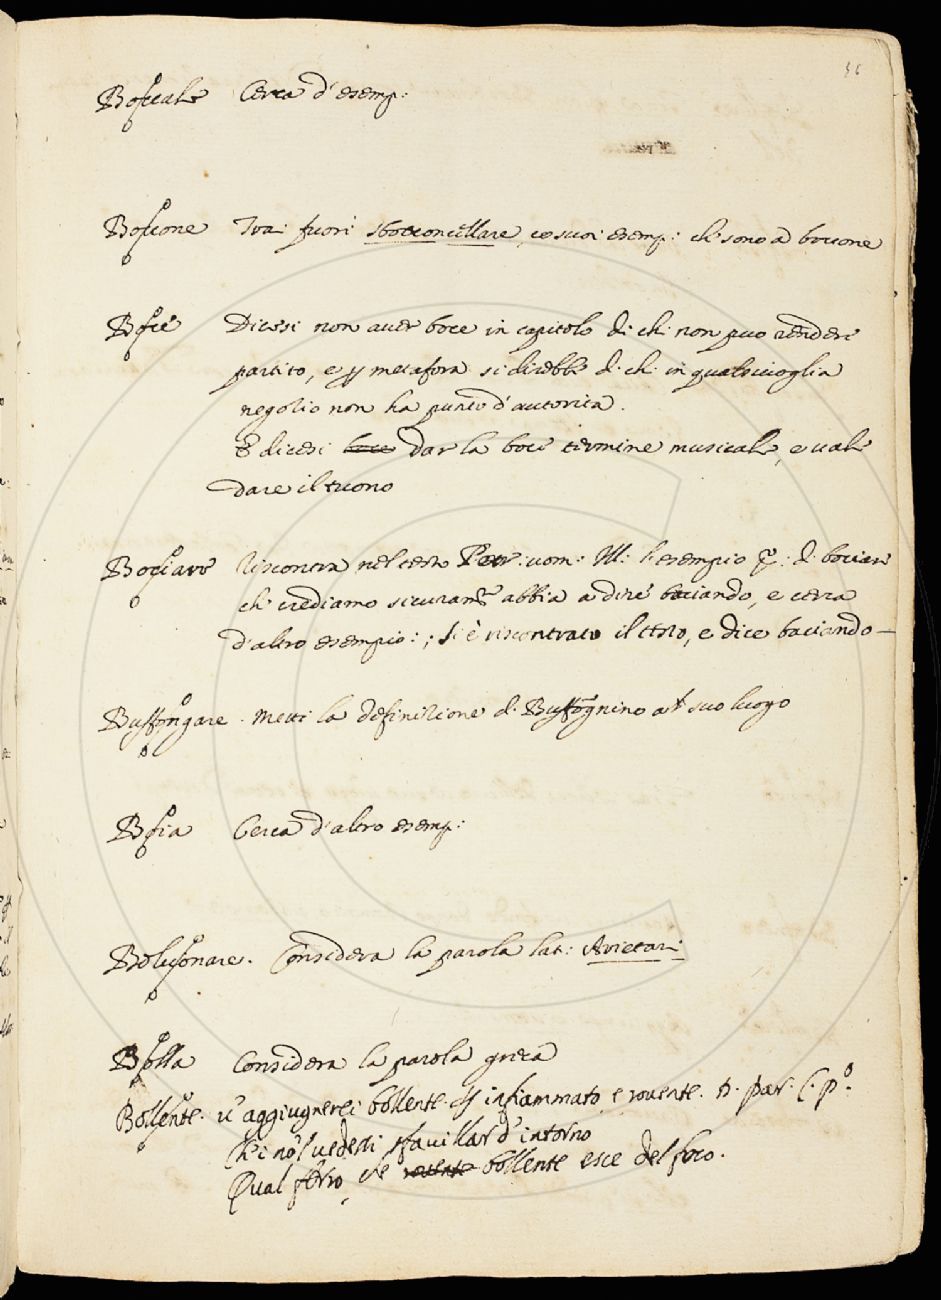 36
Boccale Cerca d'esemp:
Boccone Trai fuori sbocconcellare, co suoi esemp: ch sono a boccone
Boce Dicesi non auer boce in capitolo di chi non puo rendere
partito, e p metafora si direbbe d. ch. in qualsiuoglia
negotio non ha punto d'autorità.
E dicesi boce dar la boce termine musicale, e uale
dare il tuono
Bociare Riscontra nel testo Petr: uom: Ill: l'esempio p: d. bociare
ch crediamo sicuram.te abbia a dire baciando, e cerca
d'altro esempio: ; si è riscontrato il testo, e dice baciando —
Boffongare. metti la definizione d. Boffognino al suo luogo
Boia Cerca d'altro esemp:
Bolcionare. Considera la parola lat: Arietari
Bolla Considera la parola greca
Bollente. u' aggiugnerei bollente. p infiammato, e rouente. D. Par. C. p.o
Ch'i nol uedessi sfauillar d'intorno
Qual ferro, che rouente bollente esce del foco.